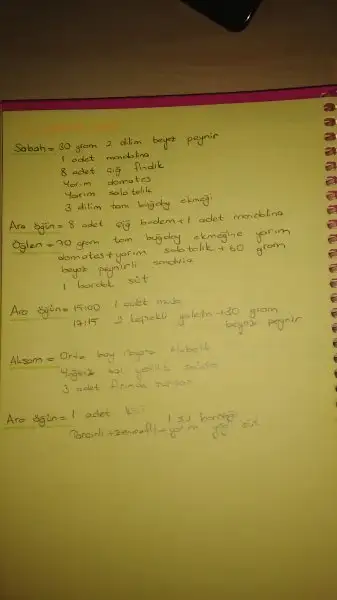 Sabah = 30 gram 2 dilim beyaz peynir
1 adet mandalina
8 adet çiğ fındık
Yarım domates
Yarım salatalık
3 dilim tam buğday ekmeği
Ara öğün = 8 adet çiğ badem + 1 adet mandalina
Öğlen = 90 gram tam buğday ekmeğine yarım
domates + yarım salatalık + 60 gram
beyaz peynirli
1 bardak süt
Ara öğün = 15:00 1 adet
17:15 2 kepekli galeta + 30 gram
beyaz peynir
Akşam = Orta boy
Yağsız bol
3 adet
Ara öğün = 1 adet 1 su bardağı
yarım süt